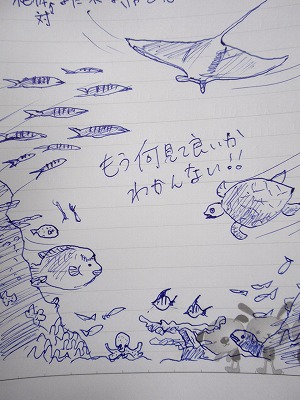 対
もう何見て良いか
わかんない!!